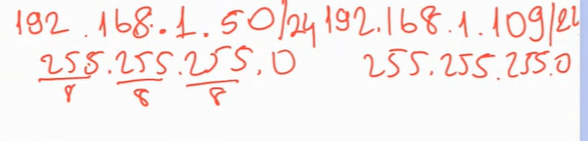 192.168.1.50/24 192.168.1.109/24
255.255.255.0 255.255.255.0
8 8 8